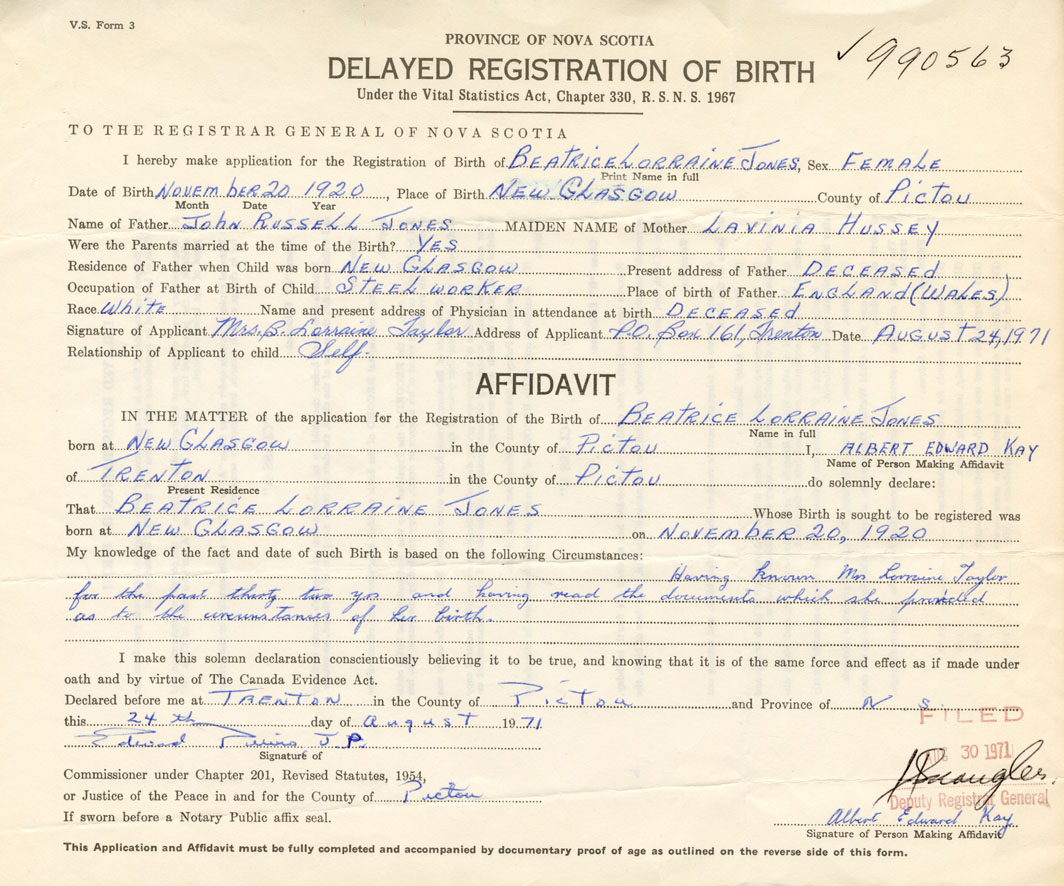 V.S. Form 3
PROVINCE OF NOVA SCOTIA
✓990563
DELAYED REGISTRATION OF BIRTH
Under the Vital Statistics Act, Chapter 330, R.S.N.S. 1967
TO THE REGISTRAR GENERAL OF NOVA SCOTIA
I hereby make application for the Registration of Birth of BEATRICE LORRAINE JONES, Sex FEMALE
Print Name in full
Date of Birth NOVEMBER 20 1920, Place of Birth NEW GLASGOW County of PICTOU
Month Date Year
Name of Father JOHN RUSSELL JONES MAIDEN NAME of Mother LAVINIA HUSSEY
Were the Parents married at the time of the Birth? YES
Residence of Father when Child was born NEW GLASGOW Present address of Father DECEASED
Occupation of Father at Birth of Child STEEL WORKER Place of birth of Father ENGLAND (WALES)
Race WHITE Name and present address of Physician in attendance at birth DECEASED
Signature of Applicant Mrs. B. Lorraine Taylor Address of Applicant P.O. Box 161, Trenton Date AUGUST 24, 1971
Relationship of Applicant to child Self.
AFFIDAVIT
IN THE MATTER of the application for the Registration of the Birth of BEATRICE LORRAINE JONES
Name in full
born at NEW GLASGOW in the County of PICTOU I, ALBERT EDWARD KAY
Name of Person Making Affidavit
of TRENTON in the County of PICTOU do solemnly declare:
Present Residence
That BEATRICE LORRAINE JONES Whose Birth is sought to be registered was
born at NEW GLASGOW on NOVEMBER 20, 1920
My knowledge of the fact and date of such Birth is based on the following Circumstances:
Having known Mrs Lorraine Taylor
for the past thirty two yrs and having read the documents which she provided
as to the circumstances of her birth.
I make this solemn declaration conscientiously believing it to be true, and knowing that it is of the same force and effect as if made under
oath and by virtue of The Canada Evidence Act.
Declared before me at TRENTON in the County of PICTOU and Province of N S.
this 24 th day of August 1971
FILED
Edward J.P.
AUG 30 1971
Signature of
Commissioner under Chapter 201, Revised Statutes, 1954,
or Justice of the Peace in and for the County of Pictou
Deputy Registrar General
If sworn before a Notary Public affix seal.
Albert Edward Kay
Signature of Person Making Affidavit
This Application and Affidavit must be fully completed and accompanied by documentary proof of age as outlined on the reverse side of this form.